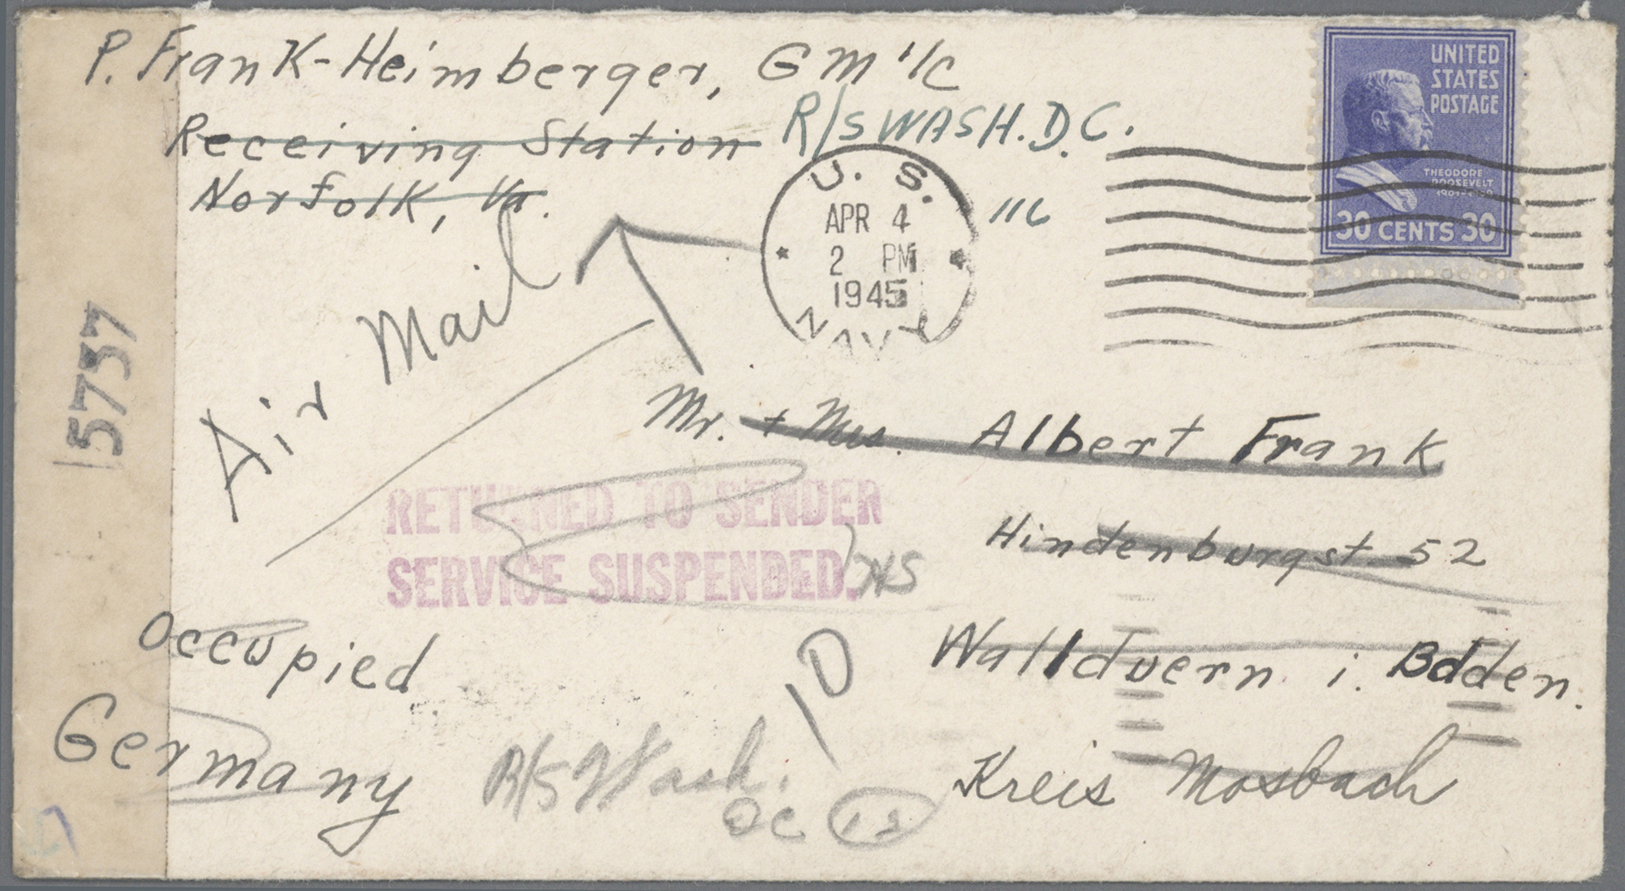 P. Frank-Heimberger, GM 1/C
Receiving Station R/S WASH. D.C.
Norfolk, Va.
UNITED
STATES
POSTAGE
THEODORE
ROOSEVELT
30 CENTS 30
U. S.
APR 4
2 PM
1945
NAVY
Air Mail
15757
Mr. + Mrs. Albert Frank
RETURNED TO SENDER
SERVICE SUSPENDED.
Hindenburgst. 52
Occupied
Germany
10
Wallduern i. Baden.
Kreis Mosbach
R/S Wash.
DC 12